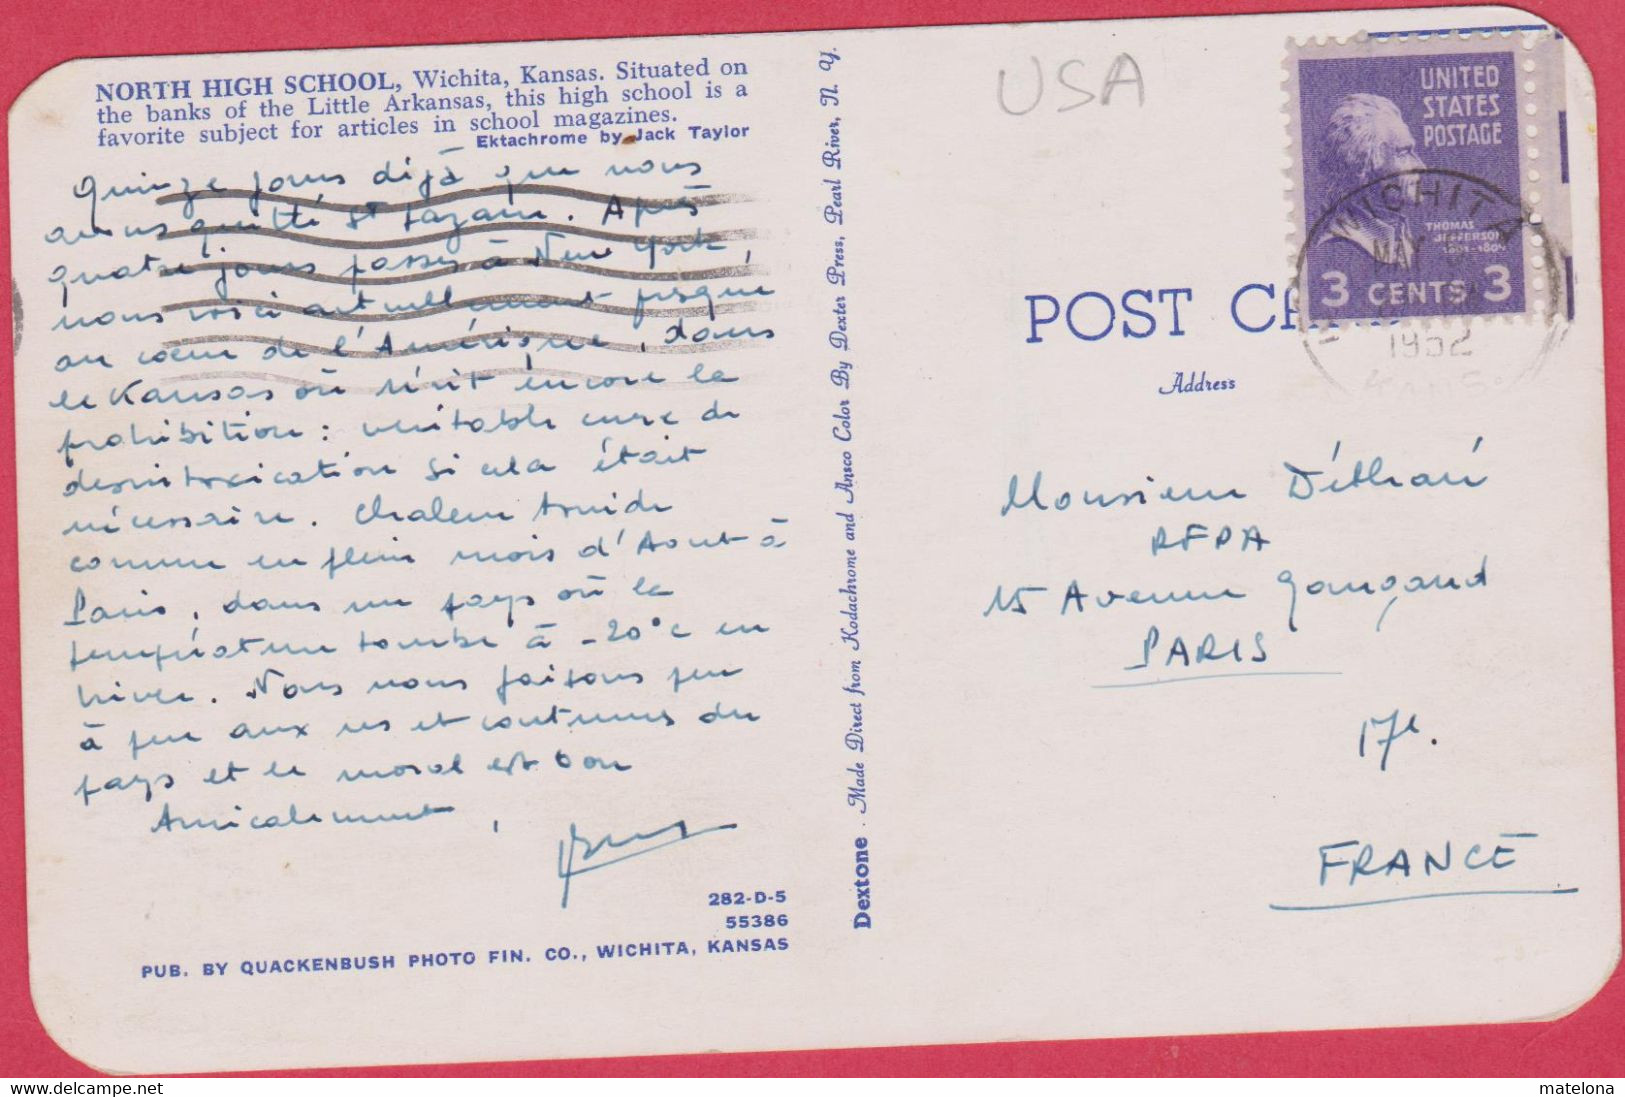 NORTH HIGH SCHOOL, Wichita, Kansas. Situated on
the banks of the Little Arkansas, this high school is a
favorite subject for articles in school magazines.
Ektachrome by Jack Taylor
Quinze jours déjà que nous
avons quitté St Lazare. Après
quatre jours passés à New York,
nous voici actuellement jusque
au cœur de l'Amérique, dans
le Kansas où sévit encore la
prohibition : véritable cure de
desintoxication si cela était
nécessaire. Chaleur torride
comme en plein mois d'Aout à
Paris, dans un pays où la
température tombe à -20°c en
hiver. Nous nous faisons peu
à peu aux us et coutumes du
pays et le moral est bon
Amicalement,
282-D-5
55386
PUB. BY QUACKENBUSH PHOTO FIN. CO., WICHITA, KANSAS
Dextone . Made Direct from Kodachrome and Ansco Color By Dexter Press, Pearl River, N. Y.
USA
UNITED
STATES
POSTAGE
THOMAS
JEFFERSON
1801-1809
3 CENTS 3
WICHITA
MAY
1952
POST CA
Address
Monsieur
RFPA
15 Avenue Gourgaud
PARIS
17e.
FRANCE
matelona